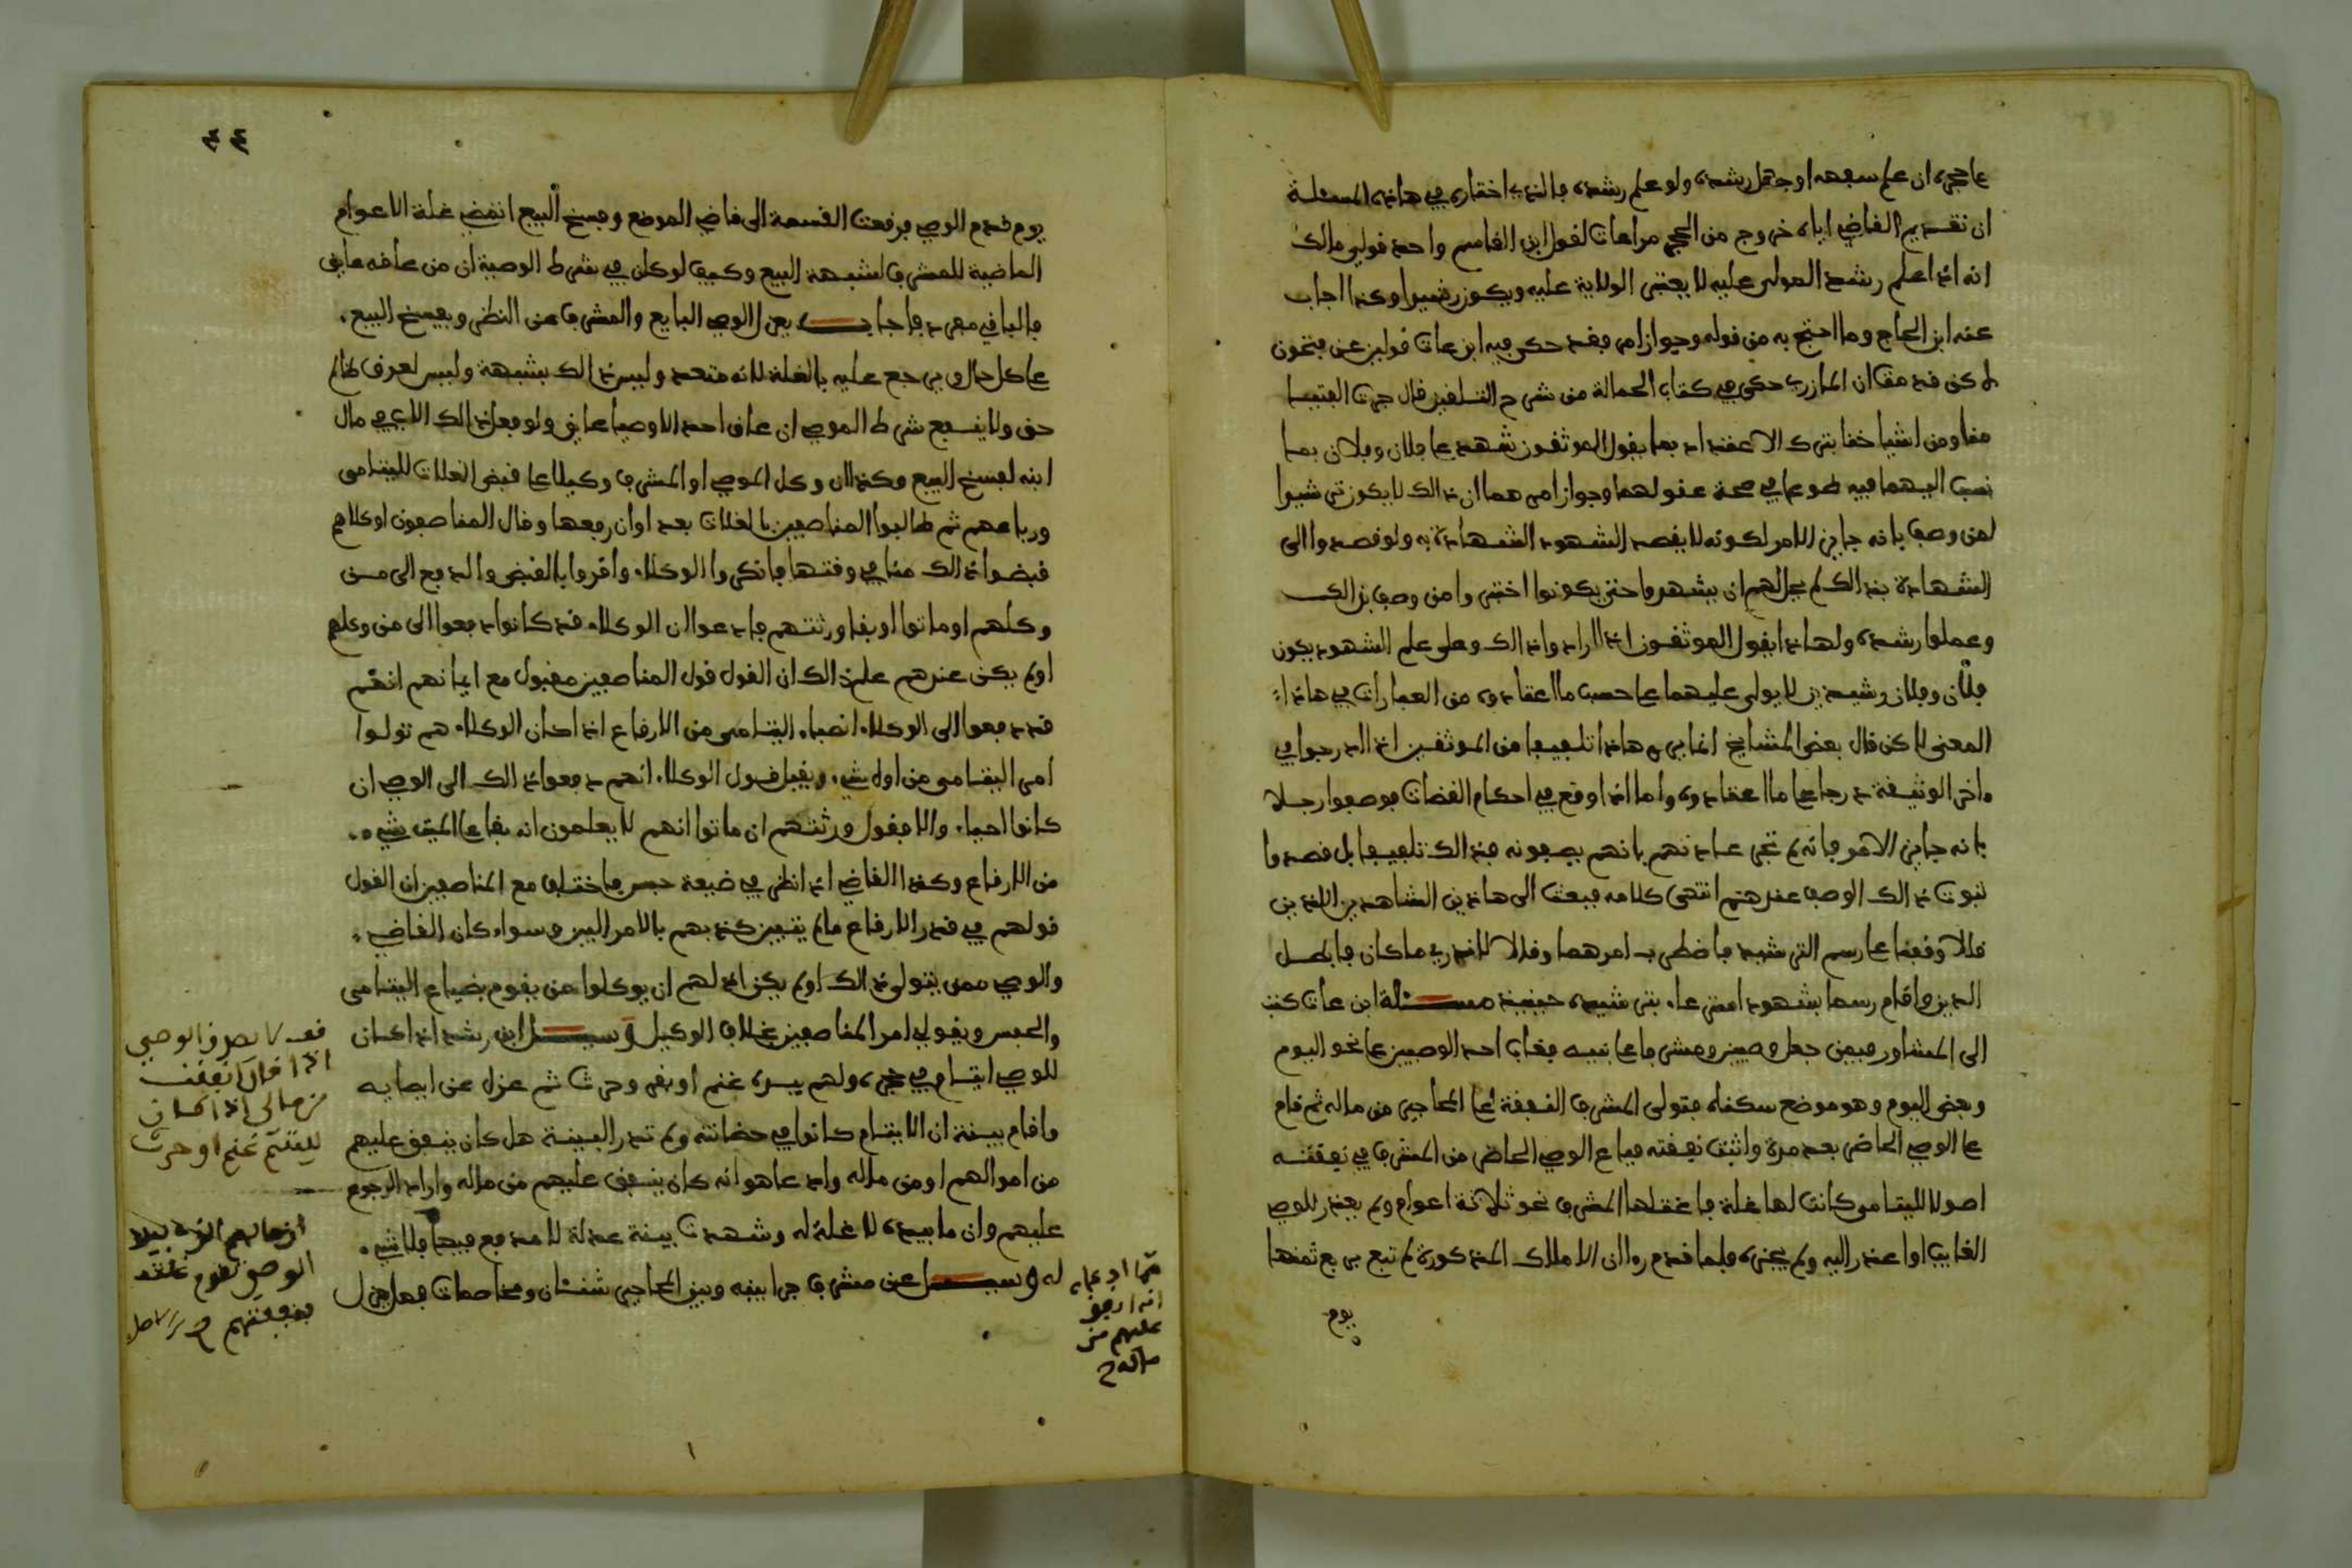 على حجره ان علم سفهه او جهل رشده ولو علم رشده فالذي اختاره في هاذه المسئلة
ان تقديم القاضي اياه خروج من الحجر مراعات لقول ابن القاسم واحد قولي مالك
انه اذا علم رشد المولى عليه لا يعتبر الولاية عليه ويكون رشيدا وكذا اجاب
عنه ابن الحاج وما احتج به من قوله وجواز امره فقد حكى فيه ابن عات قولين عن فتحون
لاكن قد مقان المازري حكى في كتاب الحمالة من شرح التلقين قال جرت الفتيا
منا ومن اشياخنا بترك الاعتداد بما يقول الموثقون شهد على فلان وفلان بما
نسب اليهما فيه طوعا في صحة عقولهما وجواز امرهما ان ذالك لا يكون ترشيدا
لمن وصف بانه جايز الامر لكونه لا يقصد الشهود الشهادة به ولو قصدوا الى
الشهادة بذالك لم يجز لهم ان يشهدوا حتى يكونوا اختبروا من وصف بذالك
وعملوا رشده ولهاذا يقول الموثقون اذا ارادوا ذالك وعلى علم الشهود بكون
فلان وفلان رشيدين لا يولى عليهما على حسب ما اعتادوه من العبارات في هاذا
المعنى لاكن قال بعض المشايخ انما يره هاذا تلفيفا من الموثقين اذا ادرجوا في
اخر الوثيقة درجا على ما اعتادوه واما اذا وقع في احكام القضات فوصفوا رجلا
بانه جايز الامر فانه لم تجر عادتهم بانهم يصفونه بذالك تلفيفا بل قصدوا
ثبوت ذالك الوصف عندهم انتهى كلامه فبعث الى هاذين الشاهدين اللذين
قالا وقفنا على رسم الترشيد فاضطرب امرهما وقالا لا ندري ما كان فابطل
الدين واقام رسما بشهود امتر على بترشيده حينيذ مسئلة ابن عات كتب
الى المشاور فيمن جعل وصيين ومشرفا على بنيه فغاب احد الوصيين على نحو اليوم
وبعض اليوم وهو موضع سكناه فتولى المشرف النفقة على المحاجير من ماله ثم قام
على الوصي الحاضر بعد مدة واثبت نفقته فباع الوصي الحاضر من المشرف في نفقته
اصولا لليتامى كانت لها غلة فاغتلها المشرف نحو ثلاثة اعوام ولم يعذر للوصي
الغايب او اعذر اليه ولم يجزه فلما قدم رءا ان الاملاك المذكورة لم تبع بربع ثمنها
يوم
٤٤
يوم قدم الوصي فرفعت القسمة الى قاضي الموضع وفسخ البيع انمض غلة الاعوام
الماضية للمشرف لشبهة البيع وكيف لو كان في شرط الوصية ان من عاقه عايق
فالباقي مفرد فاجاب يعزل الوصي البايع والمشرف عن النظر ويفسخ البيع
على كل حال ويرجع عليه بالغلة لانه متعد وليس ذالك بشبهة وليس لعرق ظالم
حق ولا ينفع شرط الموصي ان عاق احد الاوصيا عايق ولو فعل ذالك الاب في مال
ابنه لفسخ البيع وكذا ان وكل الموصي او المشرف وكيلا على قبض الغلات لليتامى
ورباعهم ثم طالبوا المناصفين بالغلات بعد اوان رفعها وقال المناصفون اوكلاهم
قبضوا ذالك منا في وقتها فانكروا الوكلاء واقروا بالقبض والدفع الى من
وكلهم او ماتوا او بقا ورثتهم فادعوا ان الوكلاء قد كانوا دفعوا الى من وكلهم
اولم يكن عندهم علم ذالك ان القول قول المناصفين مقبول مع ايمانهم انهم
قد دفعوا الى الوكلاء انصباء اليتامى من الارفاع اذا كان الوكلاء هم تولوا
امر اليتامى من اول شيء ويقبل قول الوكلاء انهم دفعوا ذالك الى الوصي ان
كانوا احياء والا فقول ورثتهم ان ماتوا انهم لا يعلمون انه بقا على الميت شيء
من الارفاع وكذا القاضي اذا نظر في ضيعة حبس فاختلف مع المناصفين ان القول
قولهم في قدر الارفاع مالم يتبين كذبهم بالامر البين وسواء كان القاضي
والوصي ممن يتولى ذالك اولم يكن اذ لهم ان يوكلوا من يقوم بضياع اليتامى
والحبس ويقولي امر المناصفين بخلاف الوكيل وسيل ابن رشد اذا كان
للوصي ايتام في حجره ولهم بيده غنم او بقر وحرث ثم عزل عن ايصايه
واقام بينة ان الايتام كانوا في حضانته ولم تدر البينة هل كان ينفق عليهم
من اموالهم او من ماله وادعا هو انه كان ينفق عليهم من ماله واراد الرجوع
عليهم وان ما بيده لا غلة له وشهدت بينة عدلة لا مدفع فيها فلا شيء
له وسيل عن مشرف جرا بينه وبين المحاجير شنئان ومخاصمات فهل يعزل
فف لا يصدق الوصي
اذا قال انفقت
من مالي اذا كان
لليتيم غنم او حرث
ان مالهم الذي بيد
الوصي تقوم غلته
بنفقتهم صح من الاصل
مما ادعاه
انه انفق
عليهم من
ماله صح